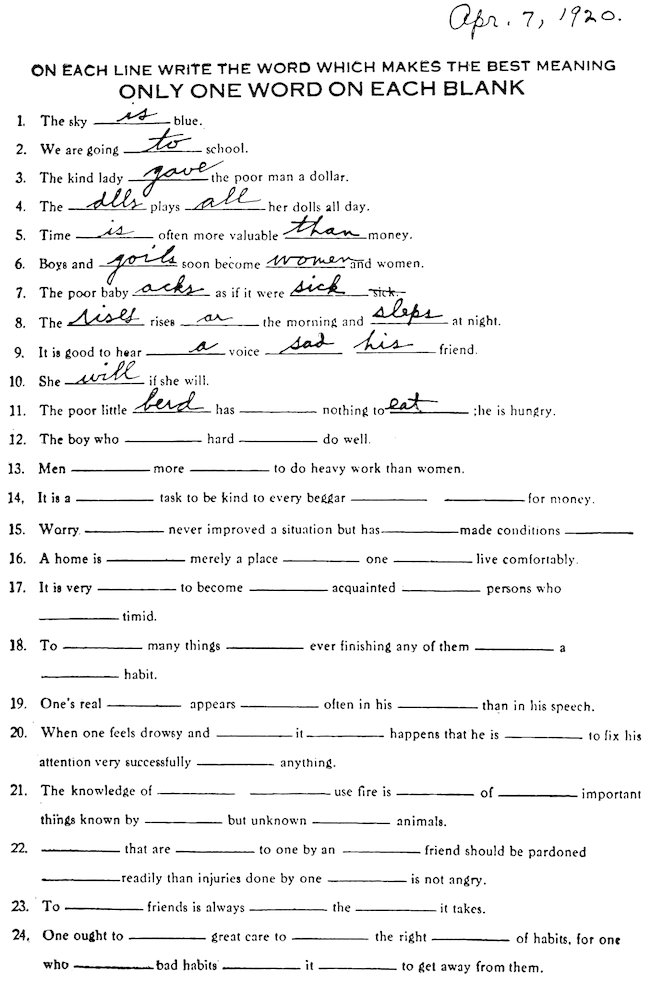 Apr. 7, 1920.
ON EACH LINE WRITE THE WORD WHICH MAKES THE BEST MEANING
ONLY ONE WORD ON EACH BLANK
1. The sky is blue.
2. We are going to school.
3. The kind lady gave the poor man a dollar.
4. The dlls plays all her dolls all day.
5. Time is often more valuable than money.
6. Boys and goils soon become women and women.
7. The poor baby acks as if it were sick sick.
8. The rises rises ar the morning and sleps at night.
9. It is good to hear a voice sad his friend.
10. She will if she will.
11. The poor little berd has ______ nothing to eat ; he is hungry.
12. The boy who ______ hard ______ do well.
13. Men ______ more ______ to do heavy work than women.
14, It is a ______ task to be kind to every beggar ______ ______ for money.
15. Worry ______ never improved a situation but has ______ made conditions ______
16. A home is ______ merely a place ______ one ______ live comfortably.
17. It is very ______ to become ______ acquainted ______ persons who
______ timid.
18. To ______ many things ______ ever finishing any of them ______ a
______ habit.
19. One's real ______ appears ______ often in his ______ than in his speech.
20. When one feels drowsy and ______ it ______ happens that he is ______ to fix his
attention very successfully ______ anything.
21. The knowledge of ______ ______ use fire is ______ of ______ important
things known by ______ but unknown ______ animals.
22. ______ that are ______ to one by an ______ friend should be pardoned
______ readily than injuries done by one ______ is not angry.
23. To ______ friends is always ______ the ______ it takes.
24, One ought to ______ great care to ______ the right ______ of habits, for one
who ______ bad habits ______ it ______ to get away from them.